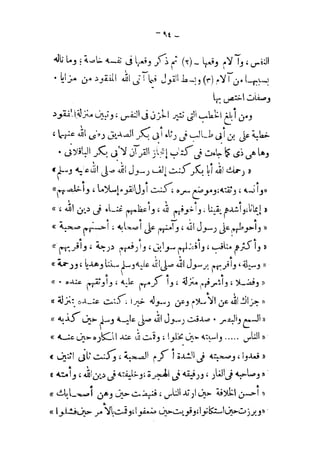 — ٩٤ —
النفس، وآلام وقعها — (٢) ثم ذكر وقعها فى نفسه خاصة؛ وما ناله
بسببها من آلام (٣) وبسط القول فيما آتى الله المفقود من مزايا،
وصفات اختص بها
ومن أبلغ الخطب التى تثير الحزن فى النفس، وتبين منزلة المفقود
خطبة على بن أبى طالب فى رثاء أبى بكر الصديق رضى الله عنهما،
وها هى ذى كما جاءت فى كتاب إعجاز القرآن لأبى بكر الباقلانى.
«رحمك الله أبا بكر كنت إلف رسول الله صلى الله عليه وسلم»
«وأنسه، وثقته، وموضع سره، كنت أول القوم إسلاما، وأخلصهم»
«إيمانا وأشدهم يقينا، وأخوفهم لله، وأعظمهم غناء فى دين الله،»
«وأحوطهم على رسول الله، وآمنهم على أصحابه، أحسنهم صحبة»
«وأكثرهم مناقب، وأفضلهم سوابق، وأرفعهم درجة، وأقربهم»
«وسيلة، وأقربهم برسول الله صلى الله عليه وسلم سننا وهديا، ورحمة»
«وفضلا، وأشرفهم منزلة، وأكرمهم عليه، وأوثقهم عنده.»
«جزاك الله عن الإسلام وعن رسوله خيرا، كنت عنده بمنزلة»
«السمع والبصر. صدقت رسول الله صلى عليه وسلم حين كذبه»
«الناس ..... واسيته حين بخلوا، وقمت له عند المكاره حين عنه»
«قعدوا، وصحبته فى الشدة أكرم الصحبة، وكنت ثانى اثنين»
«وصاحبه فى الغار، ورفيقه فى الهجرة، وخليفته فى دين الله، وأمته»
«أحسن الخلافة حين ارتد الناس، فنهضت حين وهن أصحابك»
«وبرزت حين استكانوا، وقويت حين ضعفوا، وقمت بالأمر حين فشلوا»